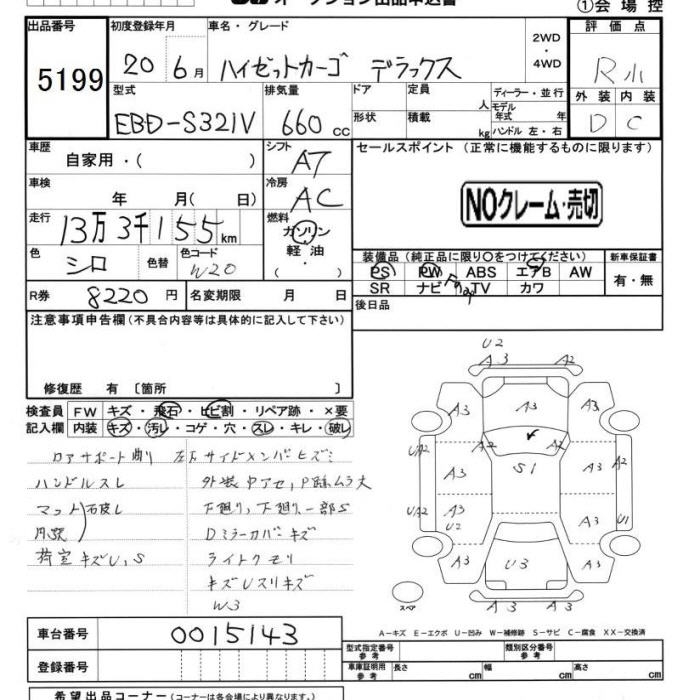 オークション出品申込書
①会場控
出品番号 初度登録年月 車名・グレード 2WD ・ 4WD 評価点
5199 20年6月 ハイゼットカーゴ デラックス R小
型式 排気量 ドア 定員 人 ディーラー・並行 外装 内装
EBD-S321V 660cc 形状 積載 kg モデル年式 年 ハンドル 左・右 D C
車歴 自家用・( ) シフト AT セールスポイント (正常に機能するものに限ります)
車検 年 月( 日) 冷房 AC
NOクレーム・売切
走行 13万3千155km 燃料 ガソリン
軽油・
( )
色 シロ 色替 色コード W20
装備品(純正品に限り○をつけてください) 新車保証書
PS PW ABS エアB AW 有・無
SR ナビ TV カワ
R券 8220円 名変期限 月 日 後日品
注意事項申告欄(不具合内容等は具体的に記入して下さい)
修復歴 有 〔箇所 〕
検査員 FW キズ・飛石・ヒビ割・リペア跡・×要
記入欄 内装 キズ・汚レ・コゲ・穴・スレ・キレ・破レ
コアサポート 左右サイドメンバーヒズミ
ハンドルスレ 外装中アセ,P跡ムラ大
マット 下廻り,下廻り一部S
内張 Dミラーカバーキズ
荷室キズU,S ライトクモリ
キズUスリキズ
W3
U2
A3 A2
A3 A3 A3
UA2 A2 A2 A2
A3 S1 A3
UA2 A3 U2 A3 U1
A3 U3 A3
スペア
A-キズ E-エクボ U-凹み W-補修跡 S-サビ C-腐食 XX-交換済
車台番号 0015143
型式指定番号 参考 類別区分番号 参考
登録番号
車庫証明用 参考 長さ cm 幅 cm 高さ cm
希望出品コーナー(コーナーは各会場により異なります)